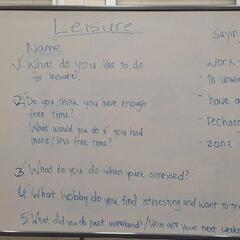 Leisure
Name
1) What do you like to do
for leisure?
2. Do you think you have enough
free time?
What would you do if you had
more/less free time?
3 What do you do when you're stressed?
4 What hobby do you find interesting and want to
5 What did you do last weekend? / What are your next
Sayin
- work-
- to unwin
- have a
- rechar
- zone